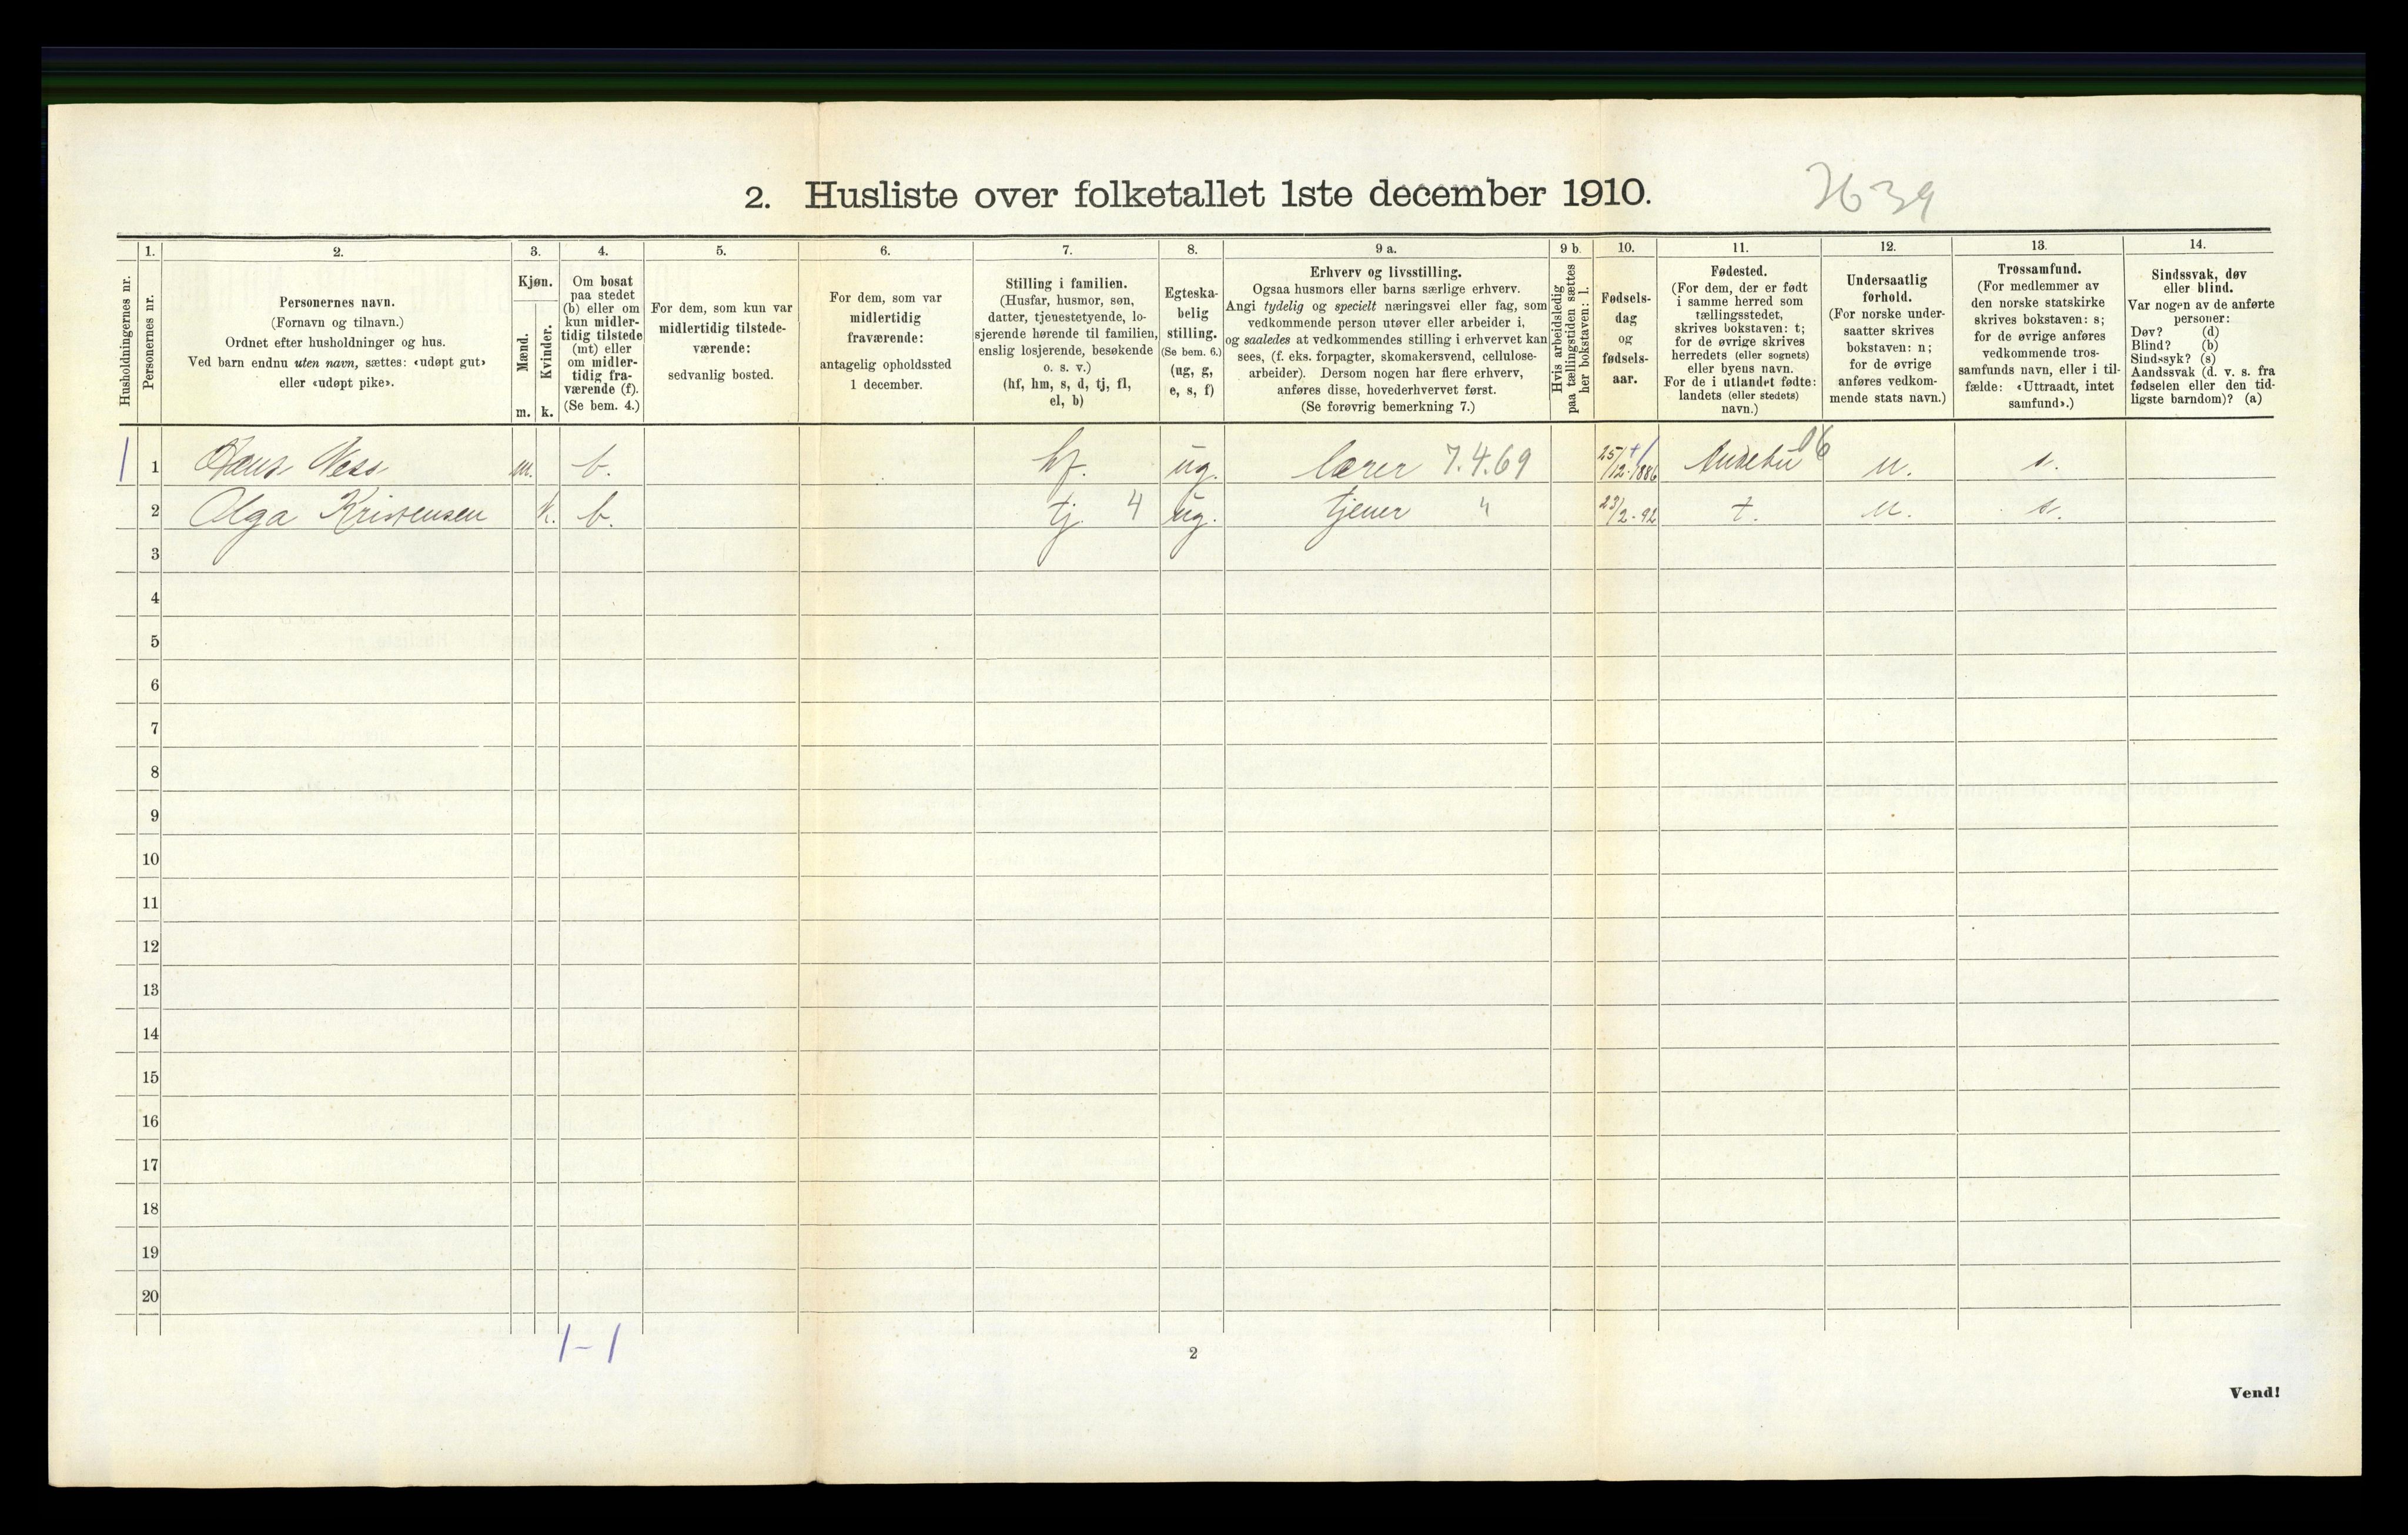 2. Husliste over folketallet 1ste december 1910.
7639
Husholdningernes nr.
1.
Personernes nr.
2.
Personernes navn.
(Fornavn og tilnavn.)
Ordnet efter husholdninger og hus.
Ved barn endnu uten navn, sættes: «udøpt gut»
eller «udøpt pike».
3.
Kjøn.
Mænd.
m.
Kvinder.
k.
4.
Om bosat
paa stedet
(b) eller om
kun midler-
tidig tilstede
(mt) eller
om midler-
tidig fra-
værende (f).
(Se bem. 4.)
5.
For dem, som kun var
midlertidig tilstede-
værende:
sedvanlig bosted.
6.
For dem, som var
midlertidig
fraværende:
antagelig opholdssted
1 december.
7.
Stilling i familien.
(Husfar, husmor, søn,
datter, tjenestetyende, lo-
sjerende hørende til familien,
enslig losjerende, besøkende
o. s. v.)
(hf, hm, s, d, tj, fl,
el, b)
8.
Egteska-
belig
stilling.
(Se bem. 6.)
(ug, g,
e, s, f)
9 a.
Erhverv og livsstilling.
Ogsaa husmors eller barns særlige erhverv.
Angi tydelig og specielt næringsvei eller fag, som
vedkommende person utøver eller arbeider i,
og saaledes at vedkommendes stilling i erhvervet kan
sees, (f. eks. forpagter, skomakersvend, cellulose-
arbeider). Dersom nogen har flere erhverv,
anføres disse, hovederhvervet først.
(Se forøvrig bemerkning 7.)
9 b.
Hvis arbeidsledig
paa tællingstiden sættes
her bokstaven: l.
10.
Fødsels-
dag
og
fødsels-
aar.
11.
Fødested.
(For dem, der er født
i samme herred som
tællingsstedet,
skrives bokstaven: t;
for de øvrige skrives
herredets (eller sognets)
eller byens navn.
For de i utlandet fødte:
landets (eller stedets)
navn.)
12.
Undersaatlig
forhold.
(For norske under-
saatter skrives
bokstaven: n;
for de øvrige
anføres vedkom-
mende stats navn.)
13.
Trossamfund.
(For medlemmer av
den norske statskirke
skrives bokstaven: s;
for de øvrige anføres
vedkommende tros-
samfunds navn, eller i til-
fælde: «Uttraadt, intet
samfund».)
14.
Sindssvak, døv
eller blind.
Var nogen av de anførte
personer:
Døv? (d)
Blind? (b)
Sindssyk? (s)
Aandssvak (d. v. s. fra
fødselen eller den tid-
ligste barndom)? (a)
1 1 Hans Ness m. b. hf. ug. lærer 7.4.69 25/12-1886 Andebu 06 n. s.
2 Olga Kristensen k. b. tj. 4 ug. tjener " 23/2-92 t. n. s.
3
4
5
6
7
8
9
10
11
12
13
14
15
16
17
18
19
20
1-1
2
Vend!